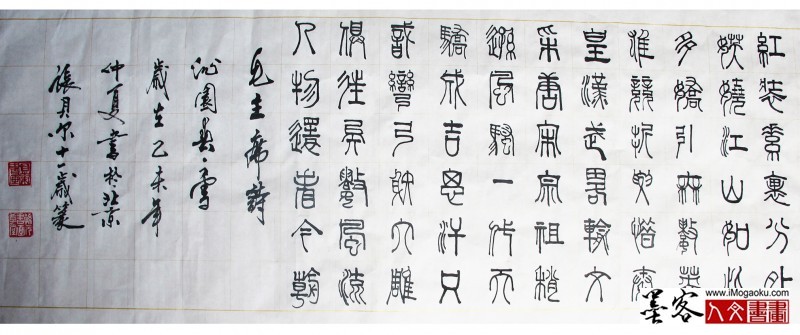 紅裝素裹分外
妖嬈江山如此
多嬌引無數英
雄競折腰惜秦
皇漢武略輸文
采唐宋宗祖稍
遜風騷一代天
驕成吉思汗只
識彎弓射大雕
俱往矣數風流
人物還看今朝
毛主席詩
沁園春·雪
歲在乙未年
仲夏書於北京
張月尔十一歲篆
www.iMogaoku.com
墨客
人文書畫